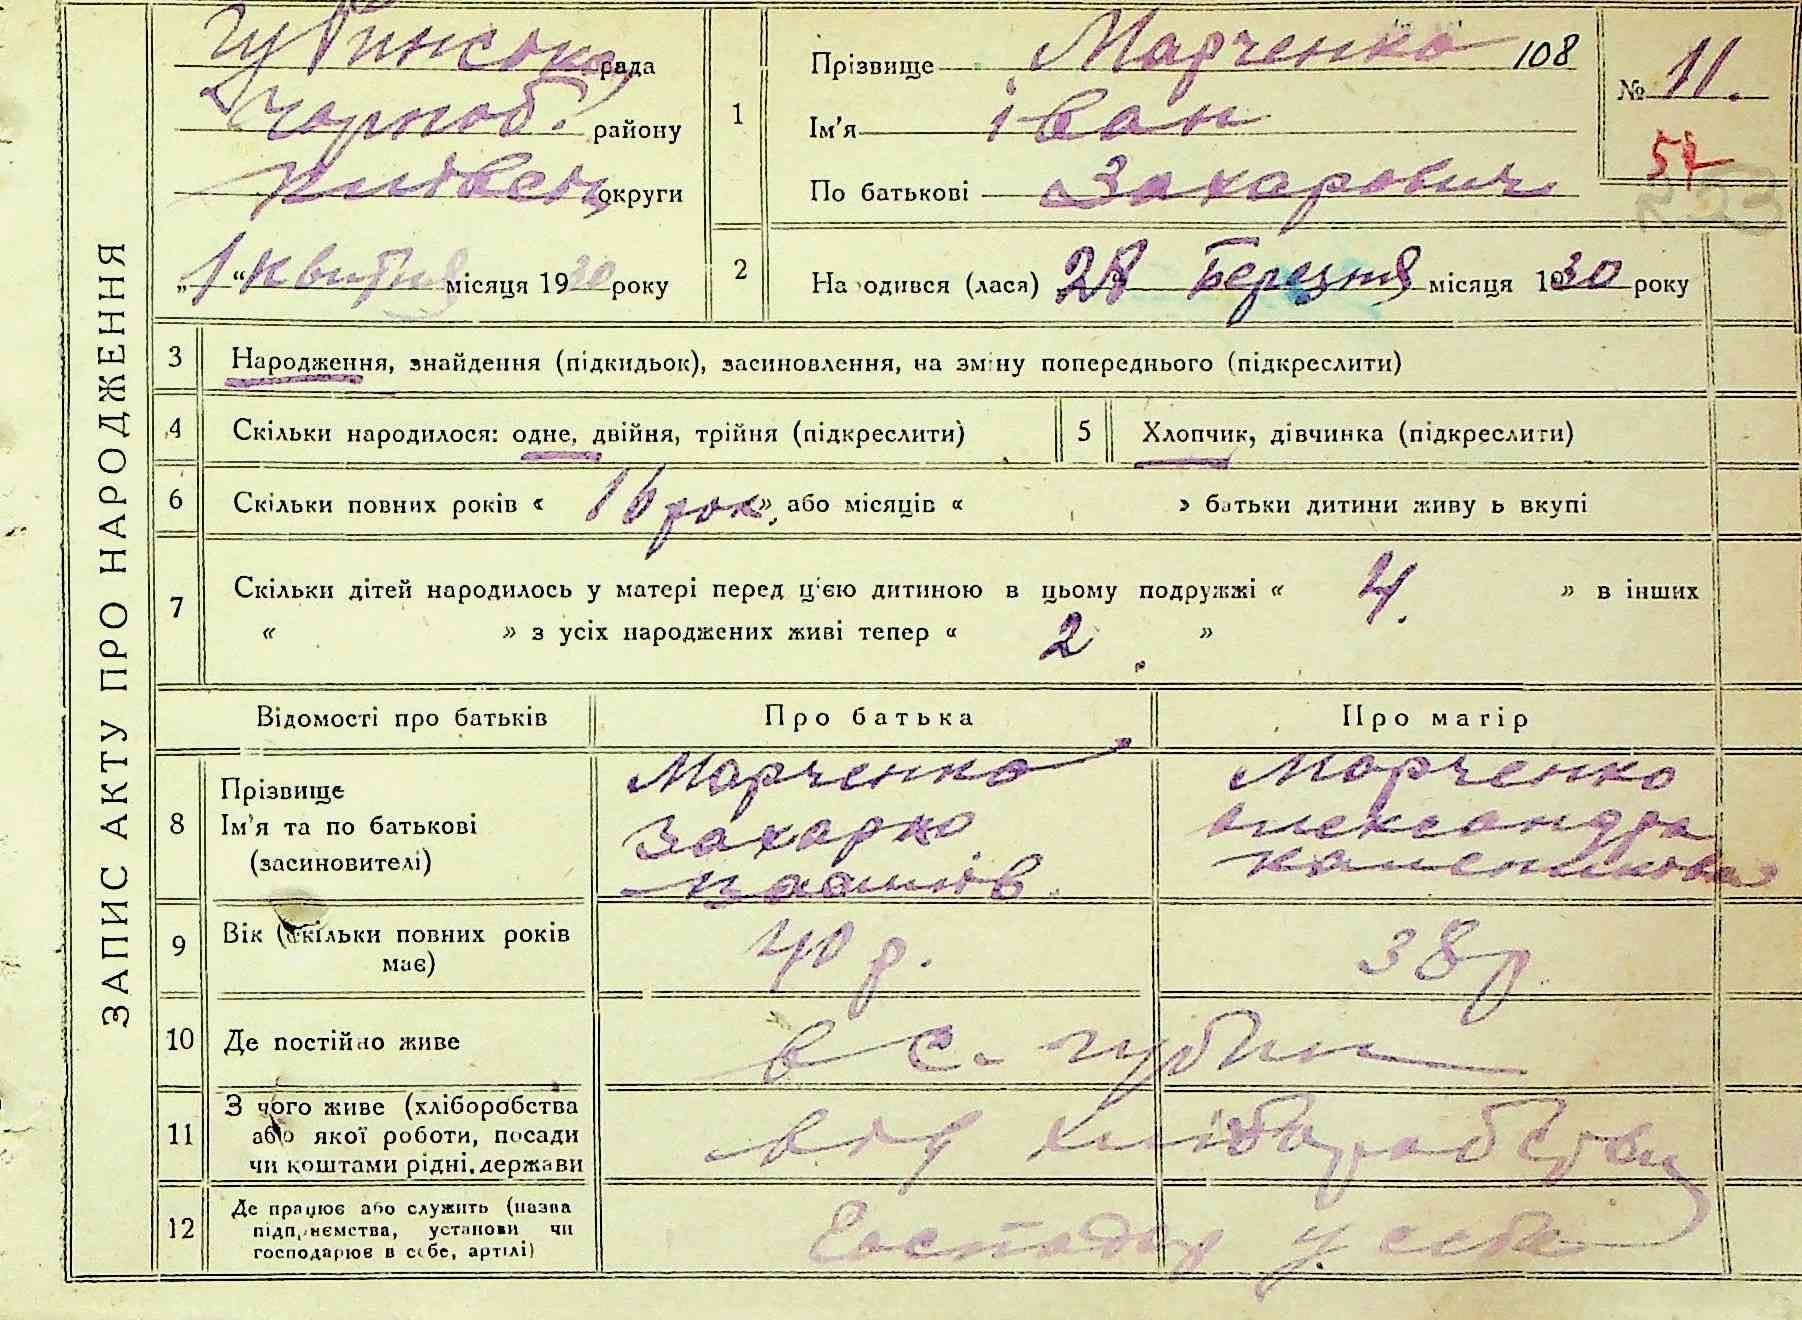 ЗАПИС АКТУ ПРО НАРОДЖЕННЯ
Губинська рада
Чорноб. району
Київськ округи
„1“ квітня місяця 1930 року
1
Прізвище Марченко 108
Ім'я Іван
По батькові Захарович
№ 11.
57
2
Народився (лася) 28 Березня місяця 1930 року
3 Народження, знайдення (підкидьок), засиновлення, на зміну попереднього (підкреслити)
4 Скільки народилося: одне, двійня, трійня (підкреслити)
5 Хлопчик, дівчинка (підкреслити)
6 Скільки повних років « 16 рок », або місяців « » батьки дитини живуть вкупі
7 Скільки дітей народилось у матері перед ц'єю дитиною в цьому подружжі « 4. » в інших
« » з усіх народжених живі тепер « 2. »
Відомості про батьків Про батька Про матір
8 Прізвище
Ім'я та по батькові
(засиновителі)
Марченко
Захарко
Марченко
Олександра
9 Вік (скільки повних років
має)
40 р.
38 р.
10 Де постійно живе
в с. Губин
11 З чого живе (хліборобства
або якої роботи, посади
чи коштами рідні, держави
від хліборобства
12 Де працює або служить (назва
підприємства, установи чи
господарює в себе, артілі)
Господар у себе